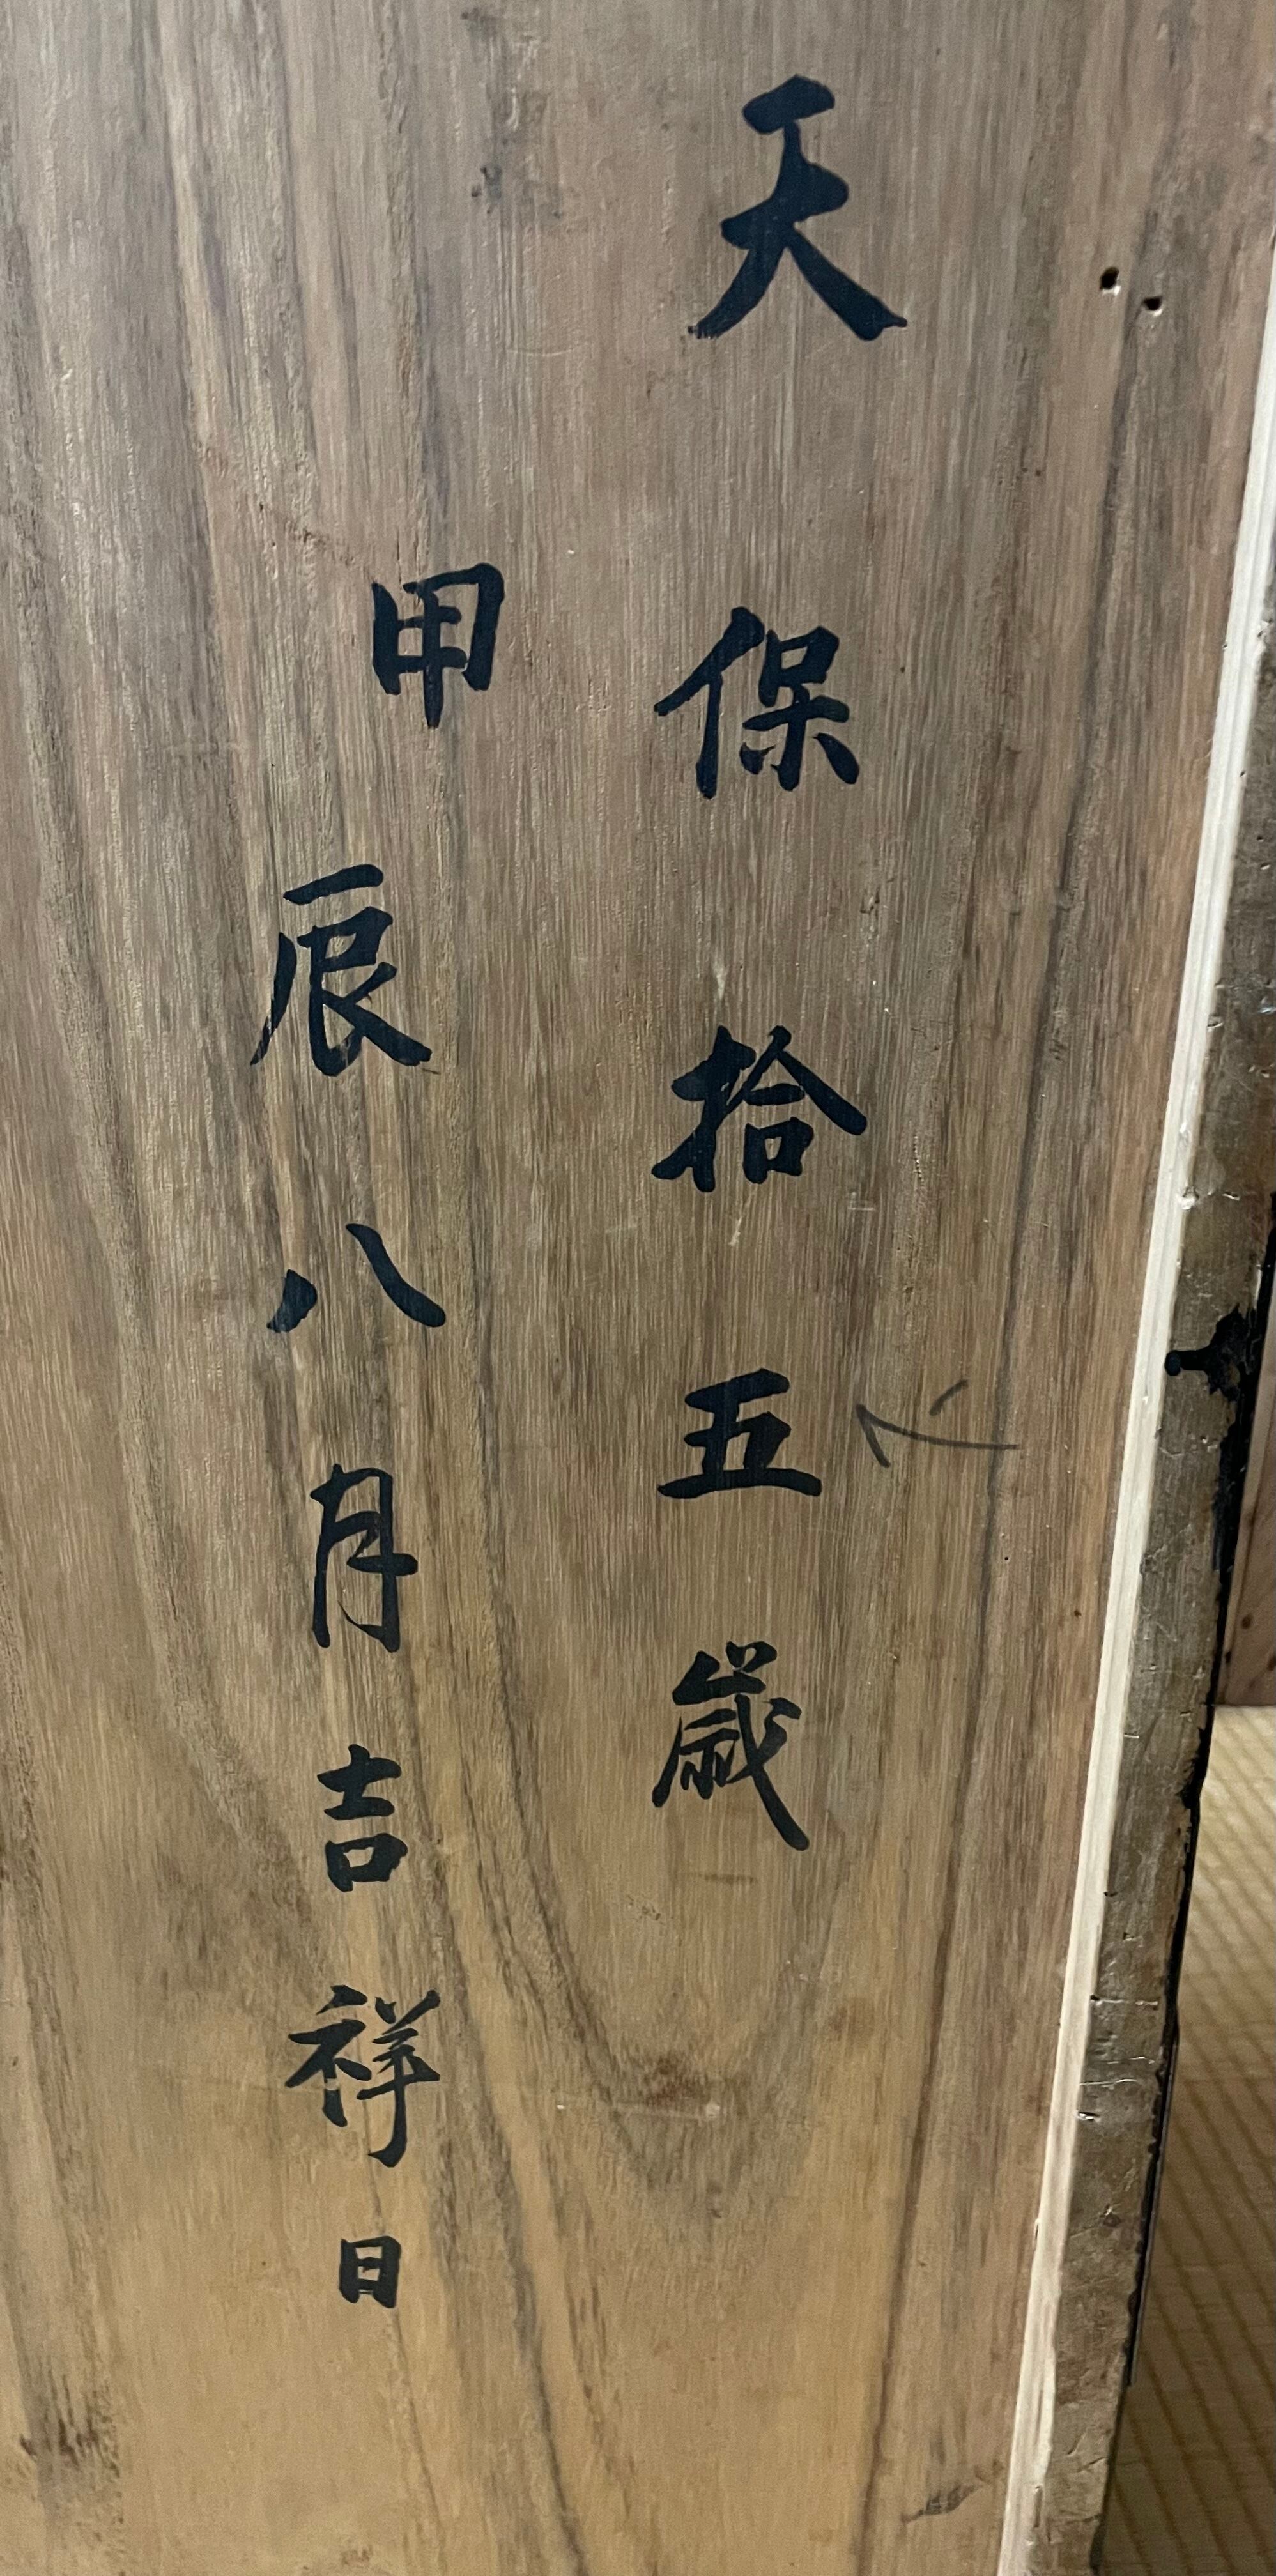 天保拾五歳
甲辰八月吉祥日